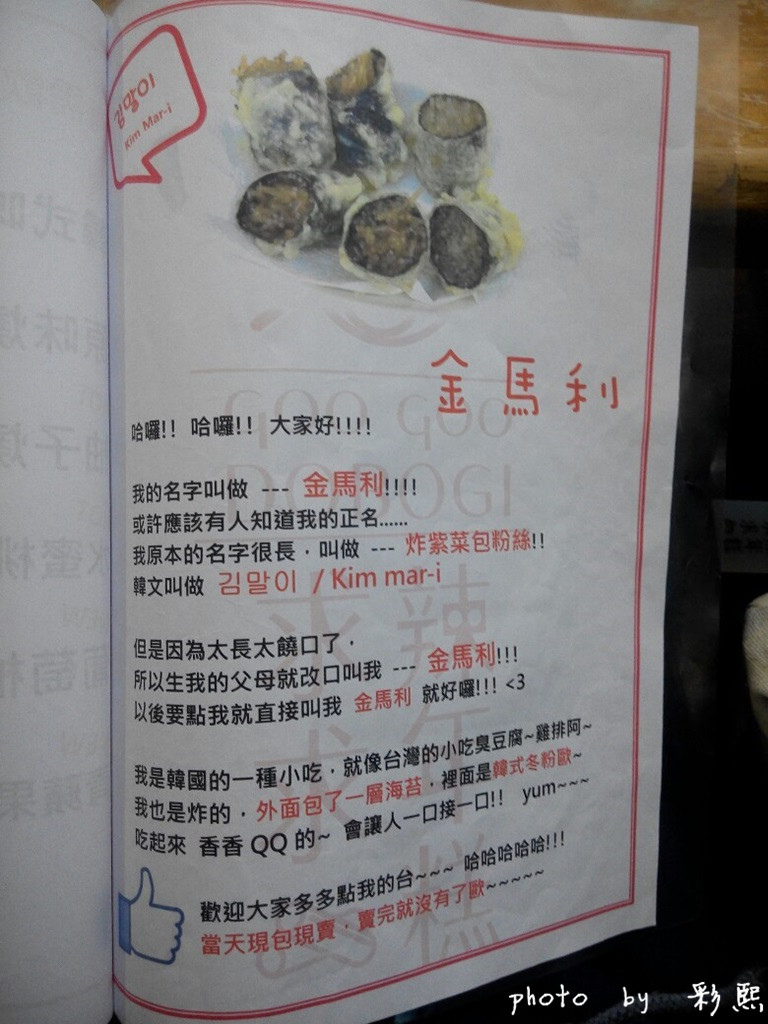 김말이
Kim Mar-i
金馬利
GOO GOO
DOBOGI
哈囉!! 哈囉!! 大家好!!!!
我的名字叫做 --- 金馬利!!!!
或許應該有人知道我的正名......
我原本的名字很長，叫做 --- 炸紫菜包粉絲!!
韓文叫做 김말이 / Kim mar-i
但是因為太長太饒口了，
所以生我的父母就改口叫我 --- 金馬利!!!
以後要點我就直接叫我 金馬利 就好囉!!! <3
我是韓國的一種小吃，就像台灣的小吃臭豆腐~雞排阿~
我也是炸的，外面包了一層海苔，裡面是韓式冬粉歐~
吃起來 香香 QQ 的~ 會讓人一口接一口!! yum~~~
歡迎大家多多點我的台~~~ 哈哈哈哈哈!!!
當天現包現賣，賣完就沒有了歐~~~~~
photo by 彩熙